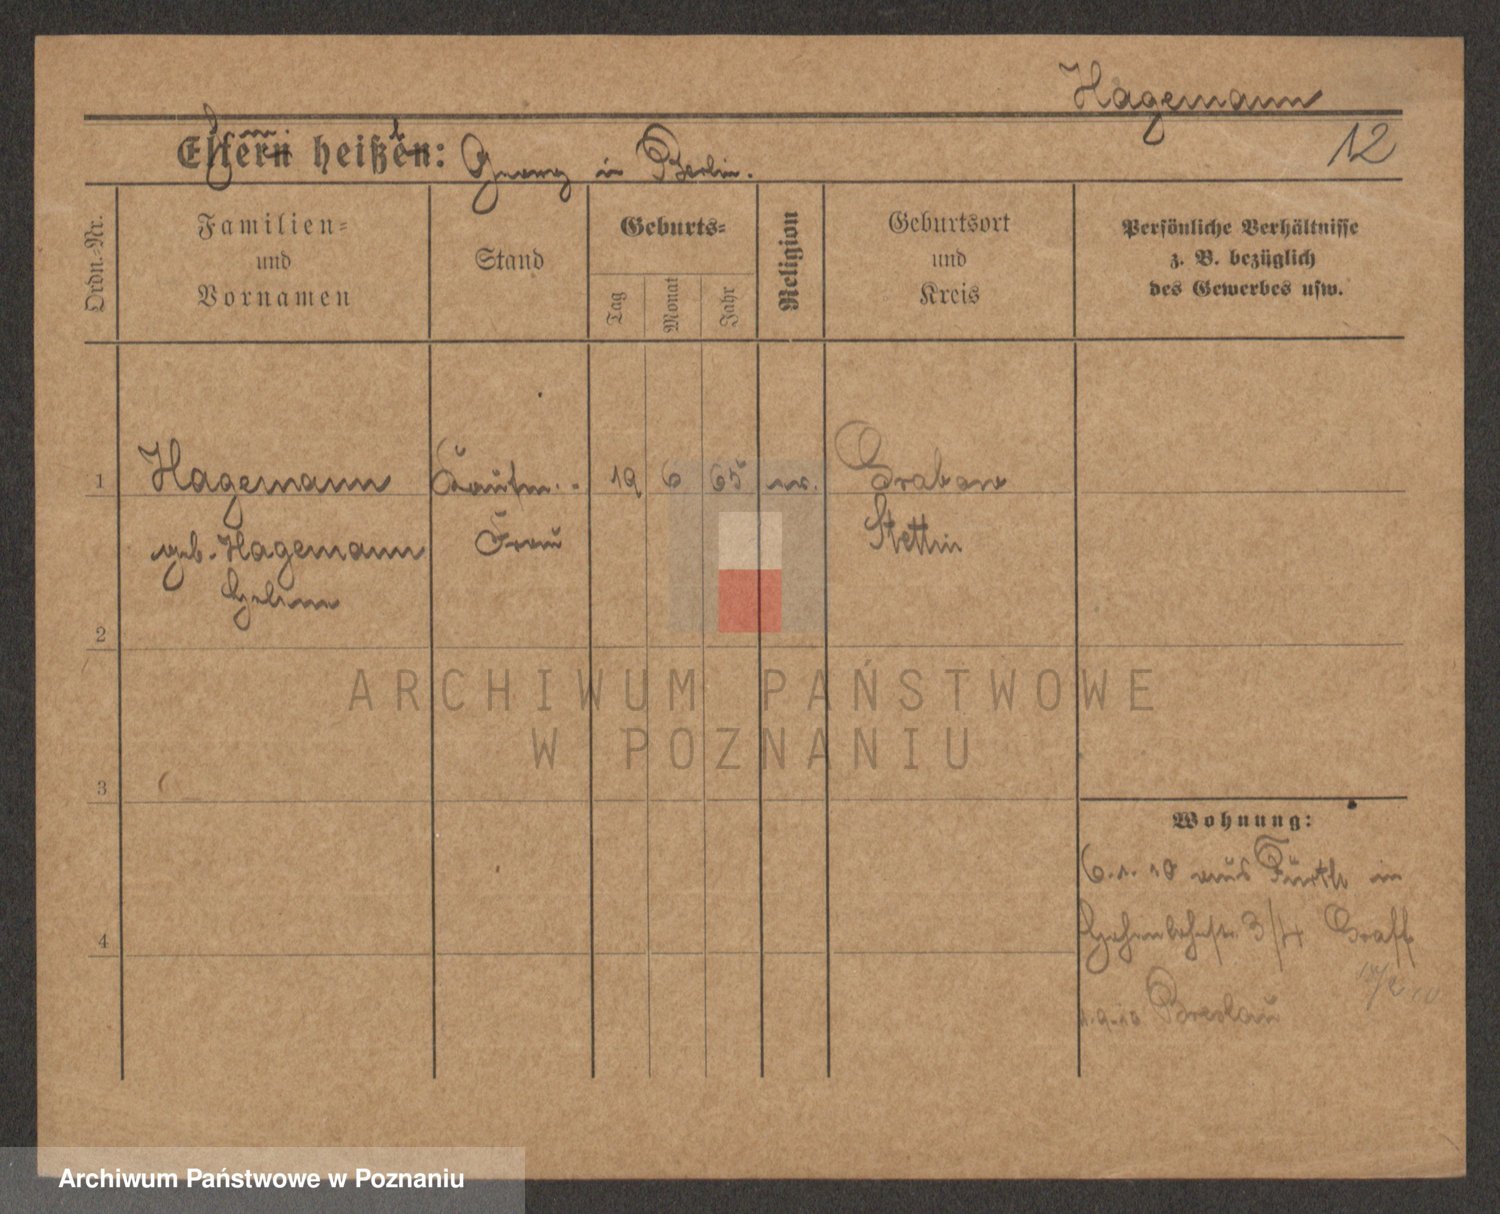 Hagemann
12
Eltern heißen: Georg in Berlin.
Ordn.-Nr.
Familien=
und
Vornamen
Stand
Geburts=
Tag
Monat
Jahr
Religion
Geburtsort
und
Kreis
Persönliche Verhältnisse
z. B. bezüglich
des Gewerbes usw.
1 Hagemann Kaufm. 19 6 65 ev. Grabow
geb. Hagemann Frau Stettin
Helene
2
ARCHIWUM PAŃSTWOWE
W POZNANIU
3
Wohnung:
6.1.10 aus Fürth in
3/4 Graff
4
1.9.10 Breslau
Archiwum Państwowe w Poznaniu